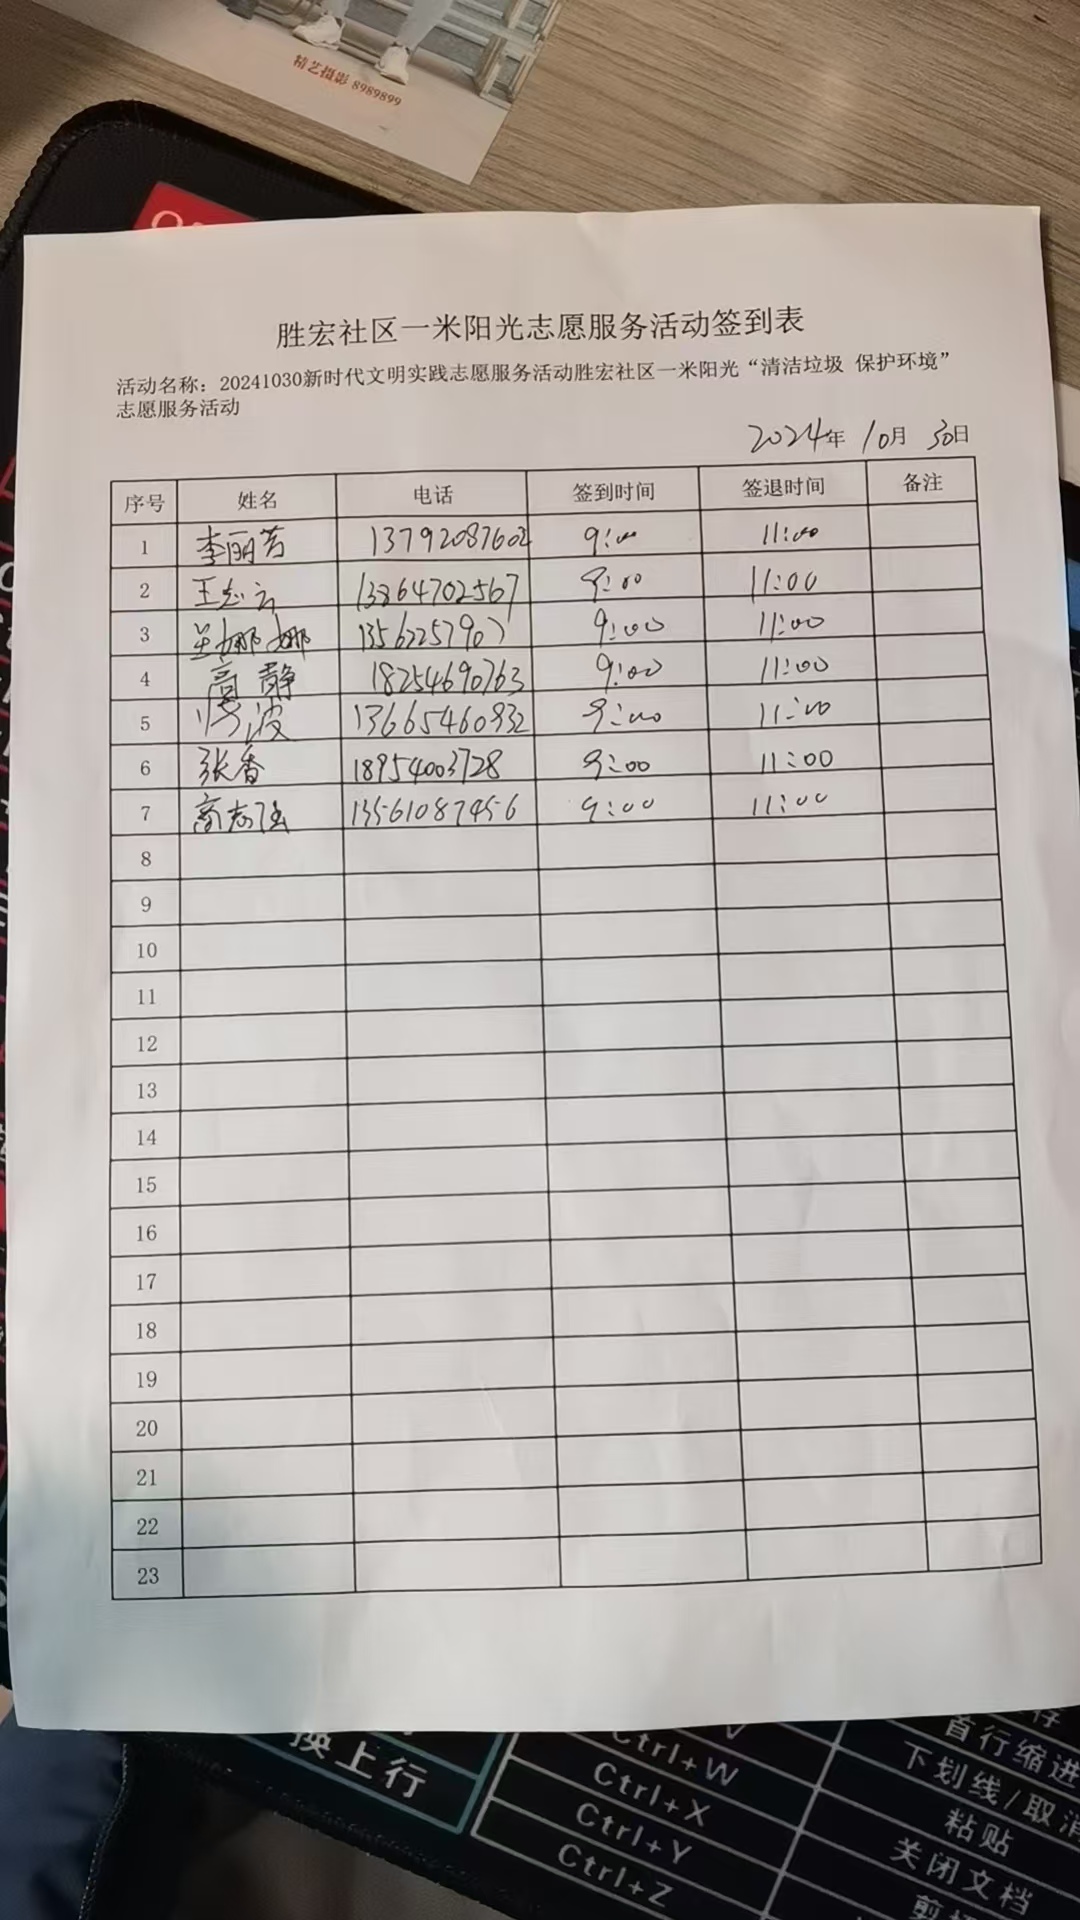 精艺摄影 8989899
胜宏社区一米阳光志愿服务活动签到表
活动名称：20241030新时代文明实践志愿服务活动胜宏社区一米阳光“清洁垃圾 保护环境”
志愿服务活动
2024年 10月 30日
序号 姓名 电话 签到时间 签退时间 备注
1 李丽芳 13792087602 9:00 11:00
2 王志云 13864702567 9:00 11:00
3 娜娜 9:00 11:00
4 高静 18254690763 9:00 11:00
5 波 13665460932 9:00 11:00
6 张香 18954003728 9:00 11:00
7 13561087456 9:00 11:00
8
9
10
11
12
13
14
15
16
17
18
19
20
21
22
23
换上行
Ctrl+W
Ctrl+X
Ctrl+Y
Ctrl+Z
首行缩进
下划线/取消
粘贴
关闭文档